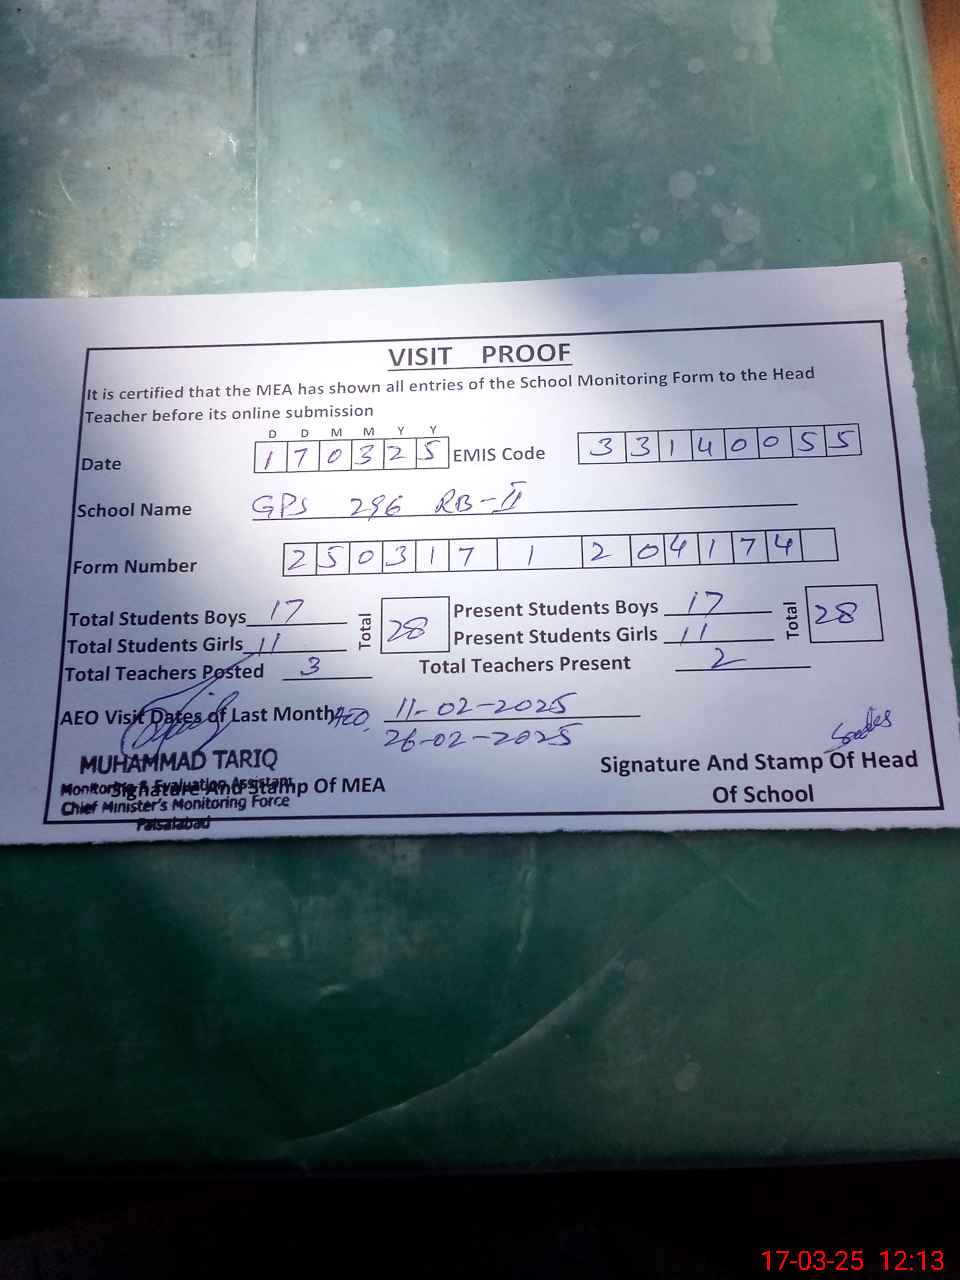 VISIT PROOF
It is certified that the MEA has shown all entries of the School Monitoring Form to the Head
Teacher before its online submission
D D M M Y Y
Date 1 7 0 3 2 5 EMIS Code 3 3 1 4 0 0 5 5
School Name GPS 296 RB-II
Form Number 2 5 0 3 1 7 1 2 0 4 1 7 4
Total Students Boys 17 Total 28 Present Students Boys 17 Total 28
Total Students Girls 11 Present Students Girls 11
Total Teachers Posted 3 Total Teachers Present 2
AEO Visit Dates of Last Month AEO 11-02-2025
26-02-2025
MUHAMMAD TARIQ
Monitoring & Evaluation Assistant
Signature And Stamp Of MEA
Chief Minister's Monitoring Force
Faisalabad
Signature And Stamp Of Head
Of School
17-03-25 12:13